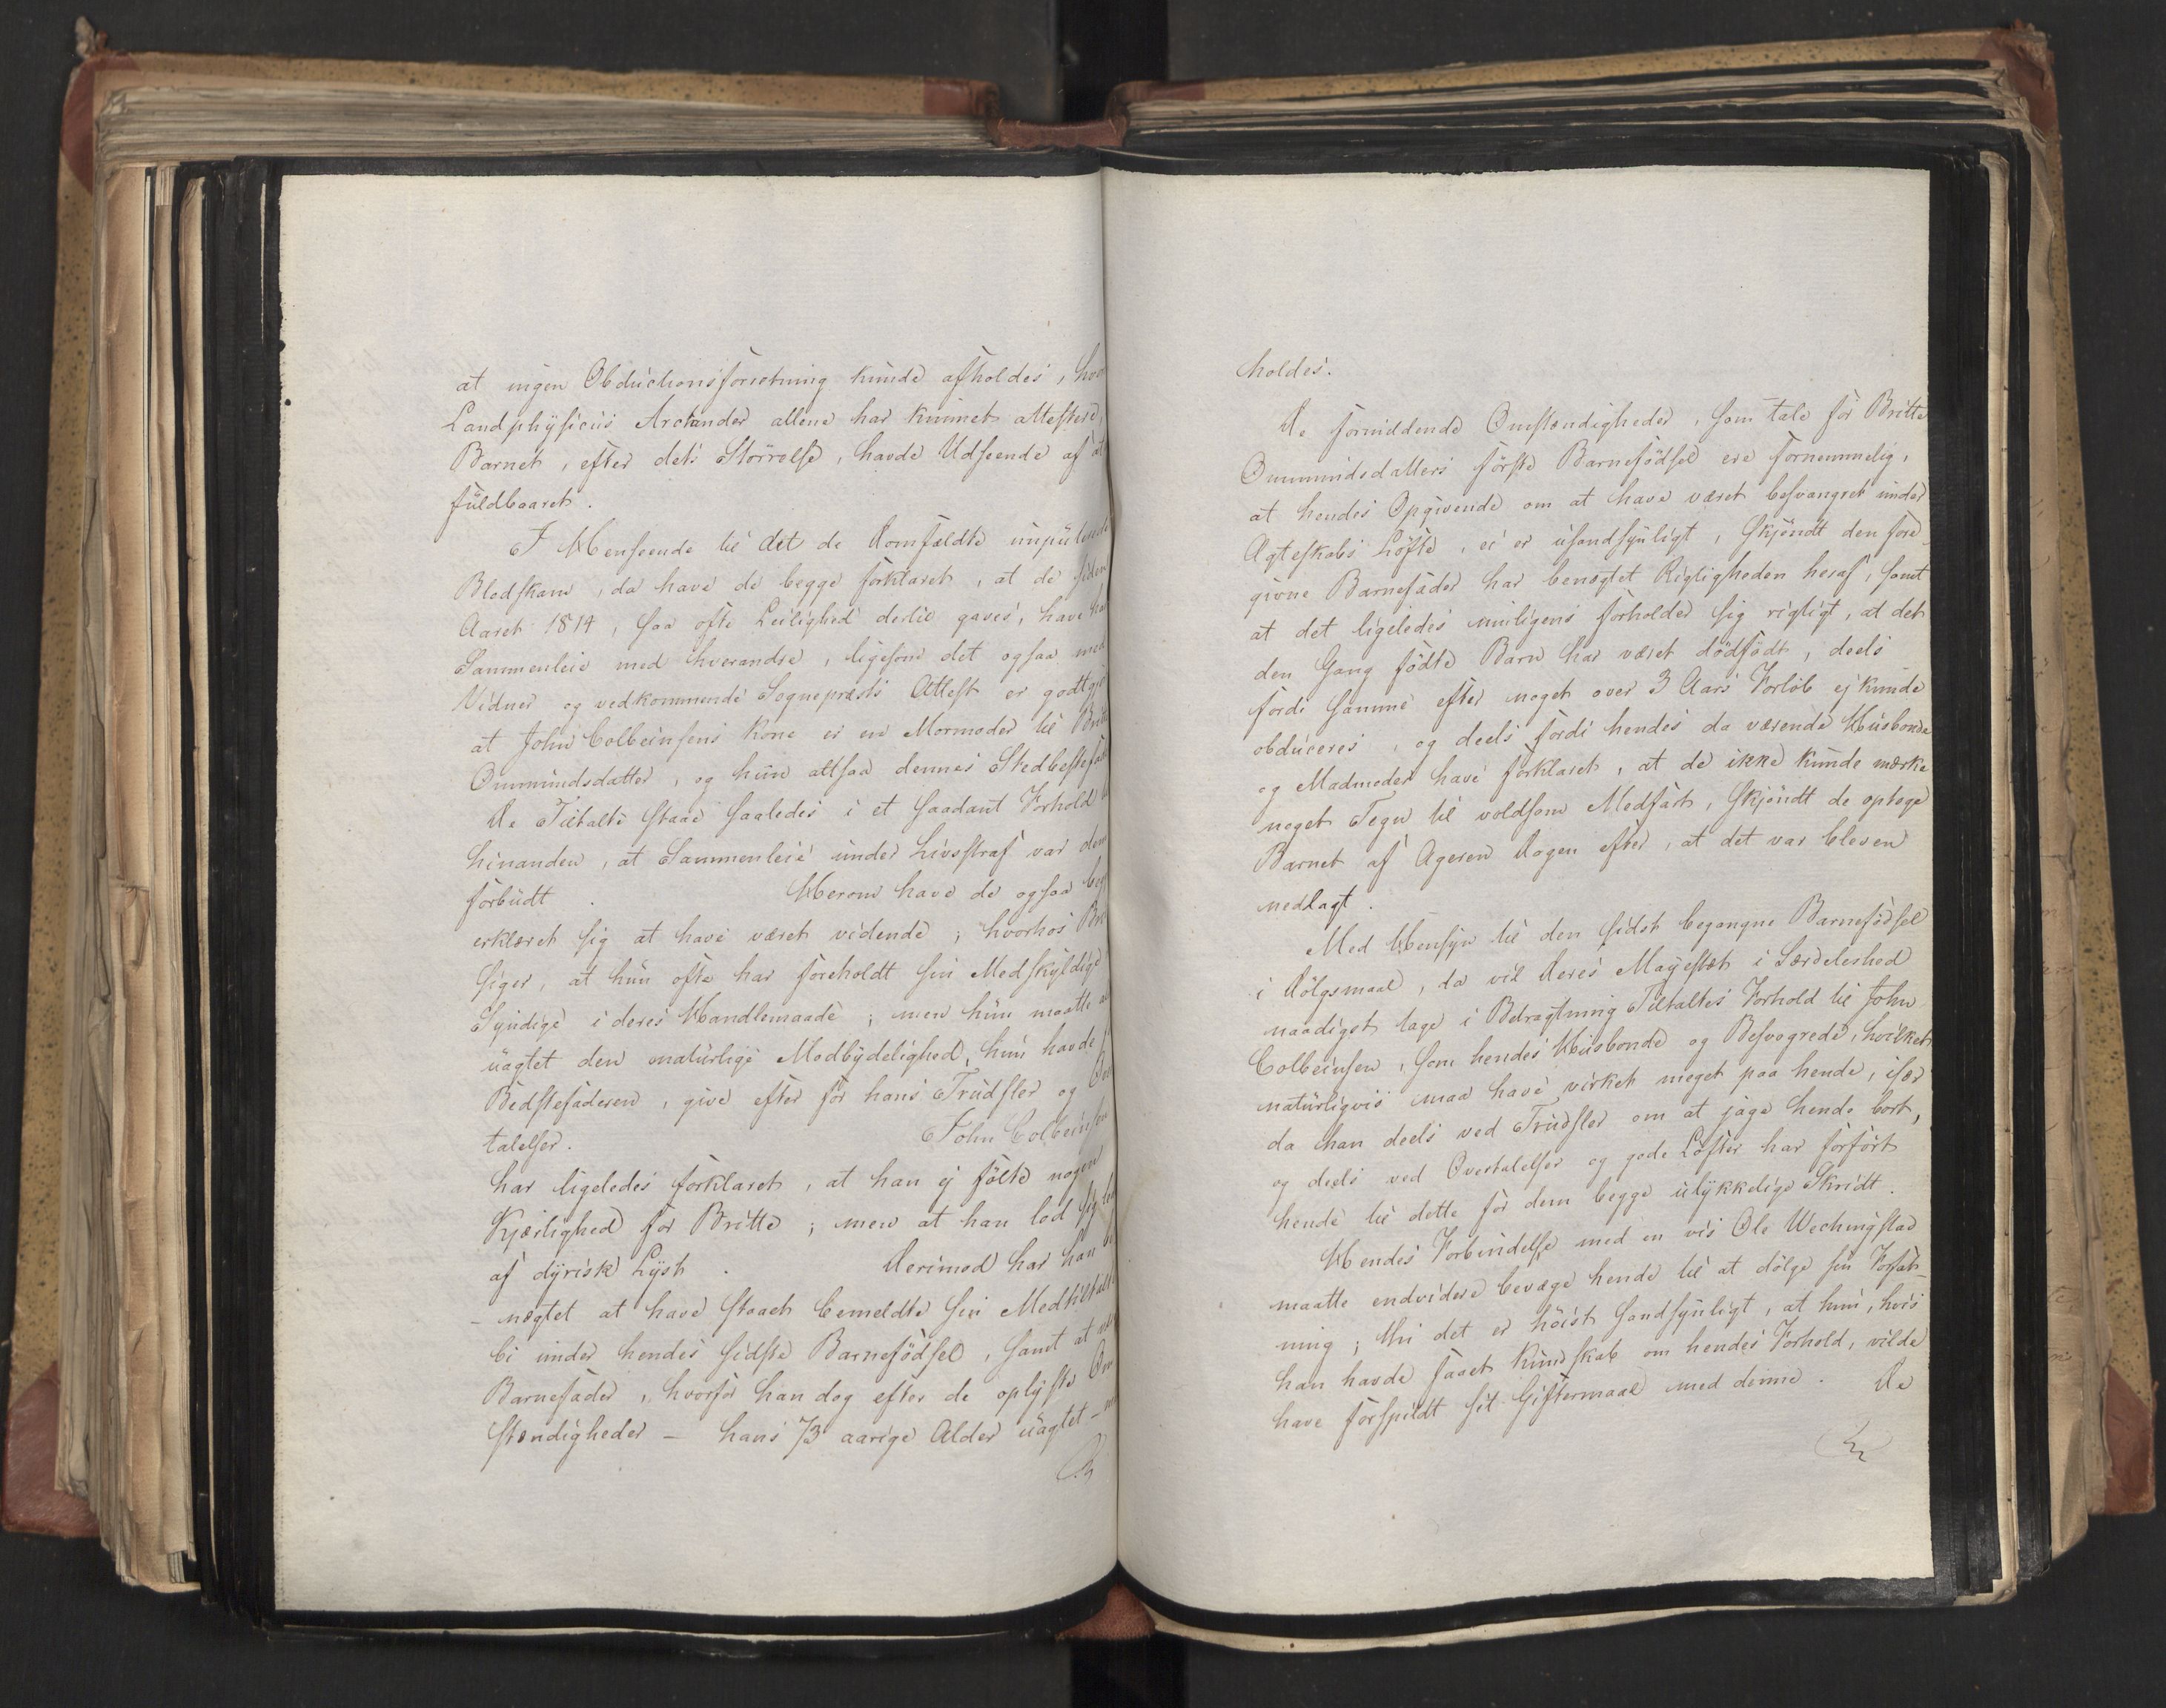 at ingen Obductionsforretning kunde afholdes, hvor
Landphysicus Arctander allene har kunnet attestere,
Barnet, efter dets Störrelse, havde Udseende af at
fuldbaaret.
I Henseende til det de Domfældte imputerede
Blodskam, da have de begge forklaret, at de siden
Aaret 1814, saa ofte Leilighed dertil gaves, have hav
Sammenleie med hverandre, ligesom det ogsaa med
Vidner og vedkommende Sognepræsts Attest er godtgj
at John Colbeinsens Kone er en Mormoder til Britte
Ommundsdatter, og hun altsaa dennes Stedbestefad
De Tiltalte staae saaledes i et saadant Forhold
hinanden, at Sammenleie under Livsstraf var dem
forbudt. Herom have de ogsaa beg
erklæret sig at have været vidende; hvorhos Bri
siger, at hun ofte har foreholdt sin Medskyldige
Syndige i deres Handlemaade; men hun maatte
uagtet den naturlige Modbydelighed, hun havde
Bedstefaderen, give efter for hans Trudsler og Over
talelser. John Colbeinsen
har ligeledes forklaret, at han ej fölte nogen
Kjærlighed for Britte; men at han lod sig lede
af dyrisk Lyst. Derimod har han be
-nægtet at have staaet bemeldte sin Medtiltalte
bi under hendes sidste Barnefödsel, samt at være
Barnefader, hvorfor han dog efter de oplyste Om
stændigheder - hans 73 aarige Alder uagtet -
holdes.
De formildende Omstændigheder, som tale for Britte
Ommundsdatters förste Barnefödsel ere fornemmelig,
at hendes Opgivende om at have været besvangret under
Ægteskabs Löfte, ei er usandsynligt, skjöndt den fore-
givne Barnefader har benægtet Rigtigheden heraf, samt
at det ligeledes muligens forholder sig rigtigt, at det
den Gang födte Barn har været dödfödt, deels
fordi samme efter noget over 3 Aars Forlöb ej kunde
obduceres, og deels fordi hendes da værende Husbonde
og Madmoder have forklaret, at de ikke kunde mærke
noget Tegn til voldsom Medfart, skjöndt de optoge
Barnet af Ageren Dagen efter, at det var bleven
nedlagt.
Med Hensyn til den sidst begangne Barnefödsel
i Dölgsmaal, da vil Deres Majestæt i Særdeleshed
naadigst tage i Betragtning Tiltaltes Forhold til John
Colbeinsen, som hendes Husbonde og Besvogrede, hvilket
naturligvis maa have virket meget paa hende, især
da han deels ved Trudsler om at jage hende bort,
og deels ved Overtalelser og gode Löfter har forfört
hende til dette for dem begge ulykkelige Skridt.
Hendes Forbindelse med en vis Ole Wechingstad
maatte endvidere bevæge hende til at dölge sin Forfat-
ning; thi det er höist sandsynligt, at hun, hvis
han havde faaet Kundskab om hendes Forhold, vilde
have forspildt sit Giftermaal med denne. De